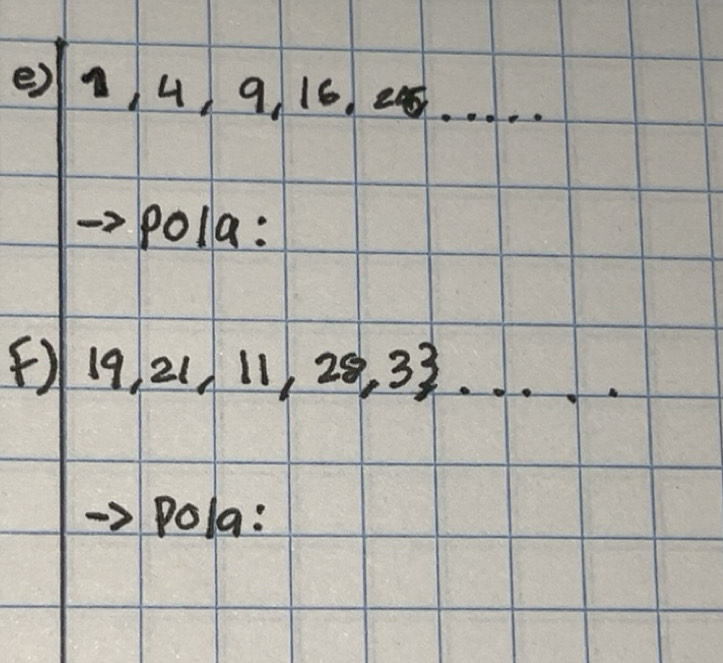 e) 1, 4, 9, 16, 25.....
-> pola:
F) 19, 21, 11, 28, 33......
-> pola: